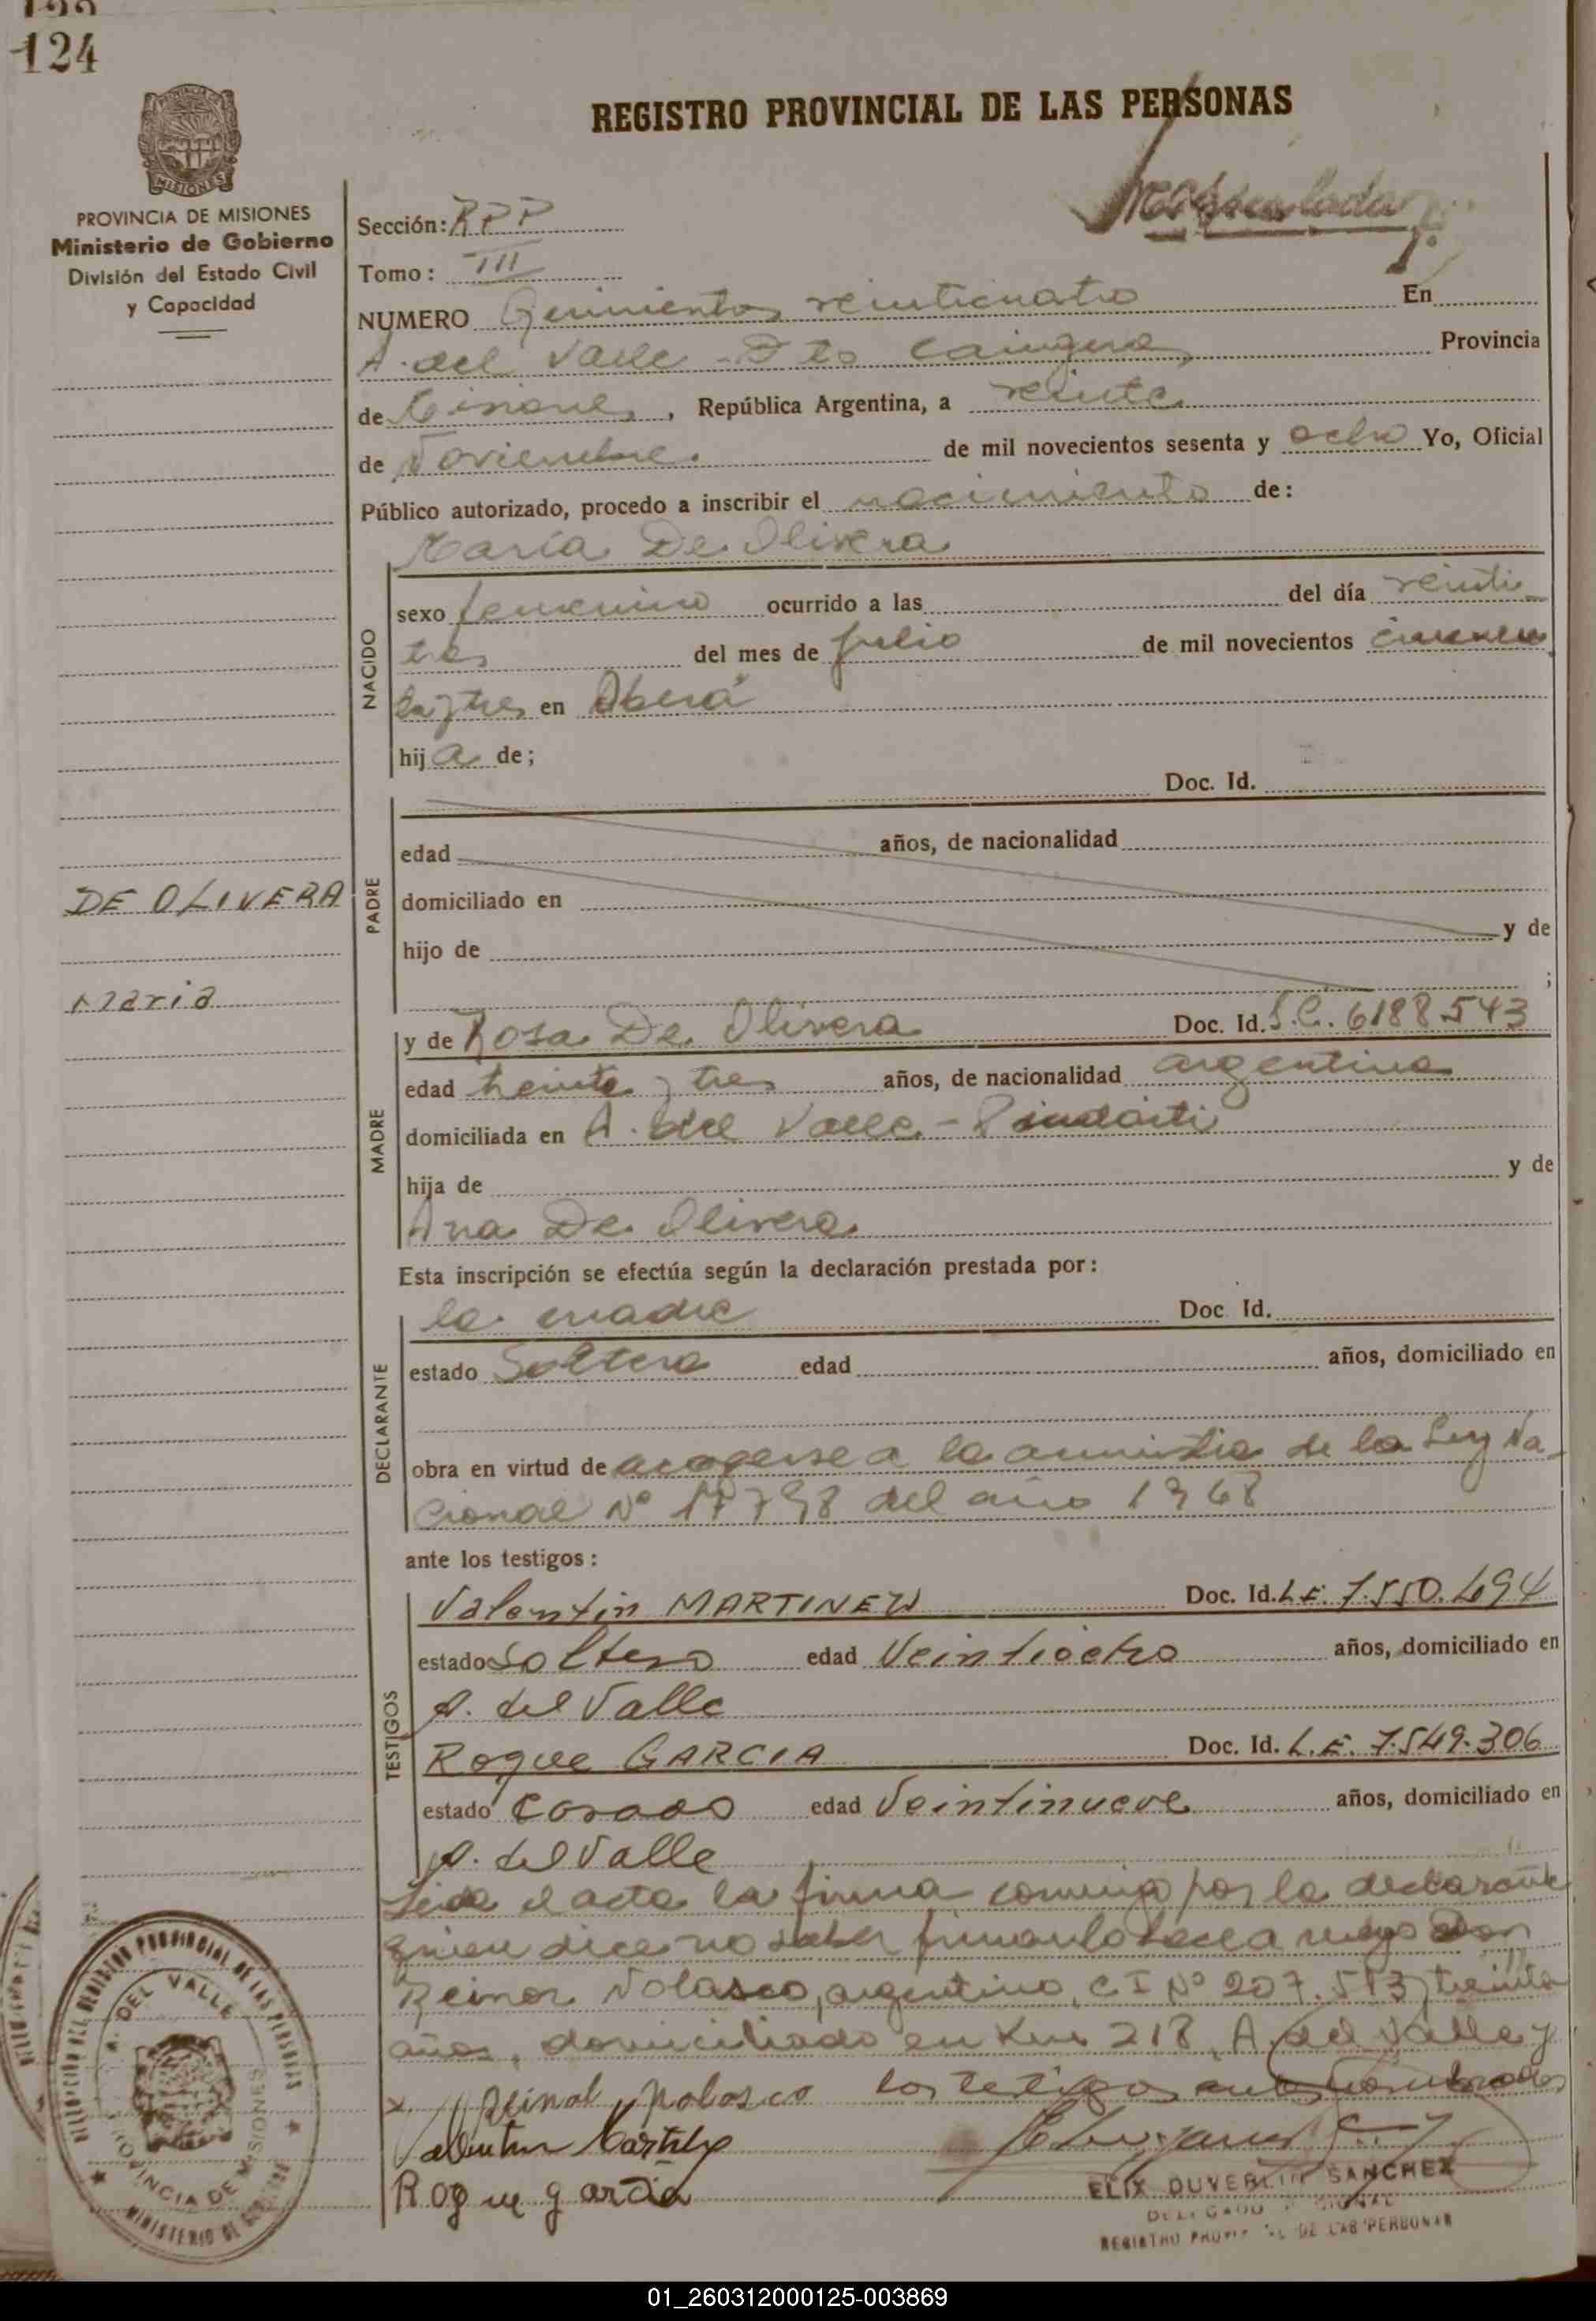 124
REGISTRO PROVINCIAL DE LAS PERSONAS
MISIONES
PROVINCIA DE MISIONES
Ministerio de Gobierno
División del Estado Civil
y Capacidad
Sección: RPP
Tomo: III
NUMERO Quinientos veinticuatro En
A. del Valle - Dto Cainguas Provincia
de Misiones, República Argentina, a veinte
de Noviembre de mil novecientos sesenta y ocho Yo, Oficial
Público autorizado, procedo a inscribir el nacimiento de:
María De Olivera
NACIDO
sexo femenino ocurrido a las del día veinti
tres del mes de julio de mil novecientos cincuen
ta y tres en Oberá
hija de;
Doc. Id.
PADRE
edad años, de nacionalidad
domiciliado en
hijo de y de
;
DE OLIVERA
Maria
MADRE
y de Rosa De Olivera Doc. Id. L.C. 6188543
edad treinta y tres años, de nacionalidad argentina
domiciliada en A. del Valle - Pindaiti
hija de y de
Ana De Olivera
Esta inscripción se efectúa según la declaración prestada por:
DECLARANTE
la madre Doc. Id.
estado Soltera edad años, domiciliado en
obra en virtud de acogerse a la amnistia de la Ley Na-
cional Nº 17798 del año 1968
ante los testigos:
TESTIGOS
Valentin MARTINEZ Doc. Id. L.E. 7.550.694
estado Soltero edad Veintiocho años, domiciliado en
A. del Valle
Roque GARCIA Doc. Id. L.E. 7.549.306
estado Casado edad Veintinueve años, domiciliado en
A. del Valle
Leida el acta la firma conmigo por la declarante
quien dice no saber firmar lo hace a ruego Don
Reinor Nolasco, argentino, C I Nº 207.513, treinta
años, domiciliado en Km 218, A. del Valle y
los testigos antes nombrados
x Reinol nolasco
Valentin Martinez
Roque garcia
ELIX DUVERLIN SANCHEZ
REGISTRO PROVINCIAL DE LAS PERSONAS
A. DEL VALLE
PROVINCIA DE MISIONES
01_260312000125-003869